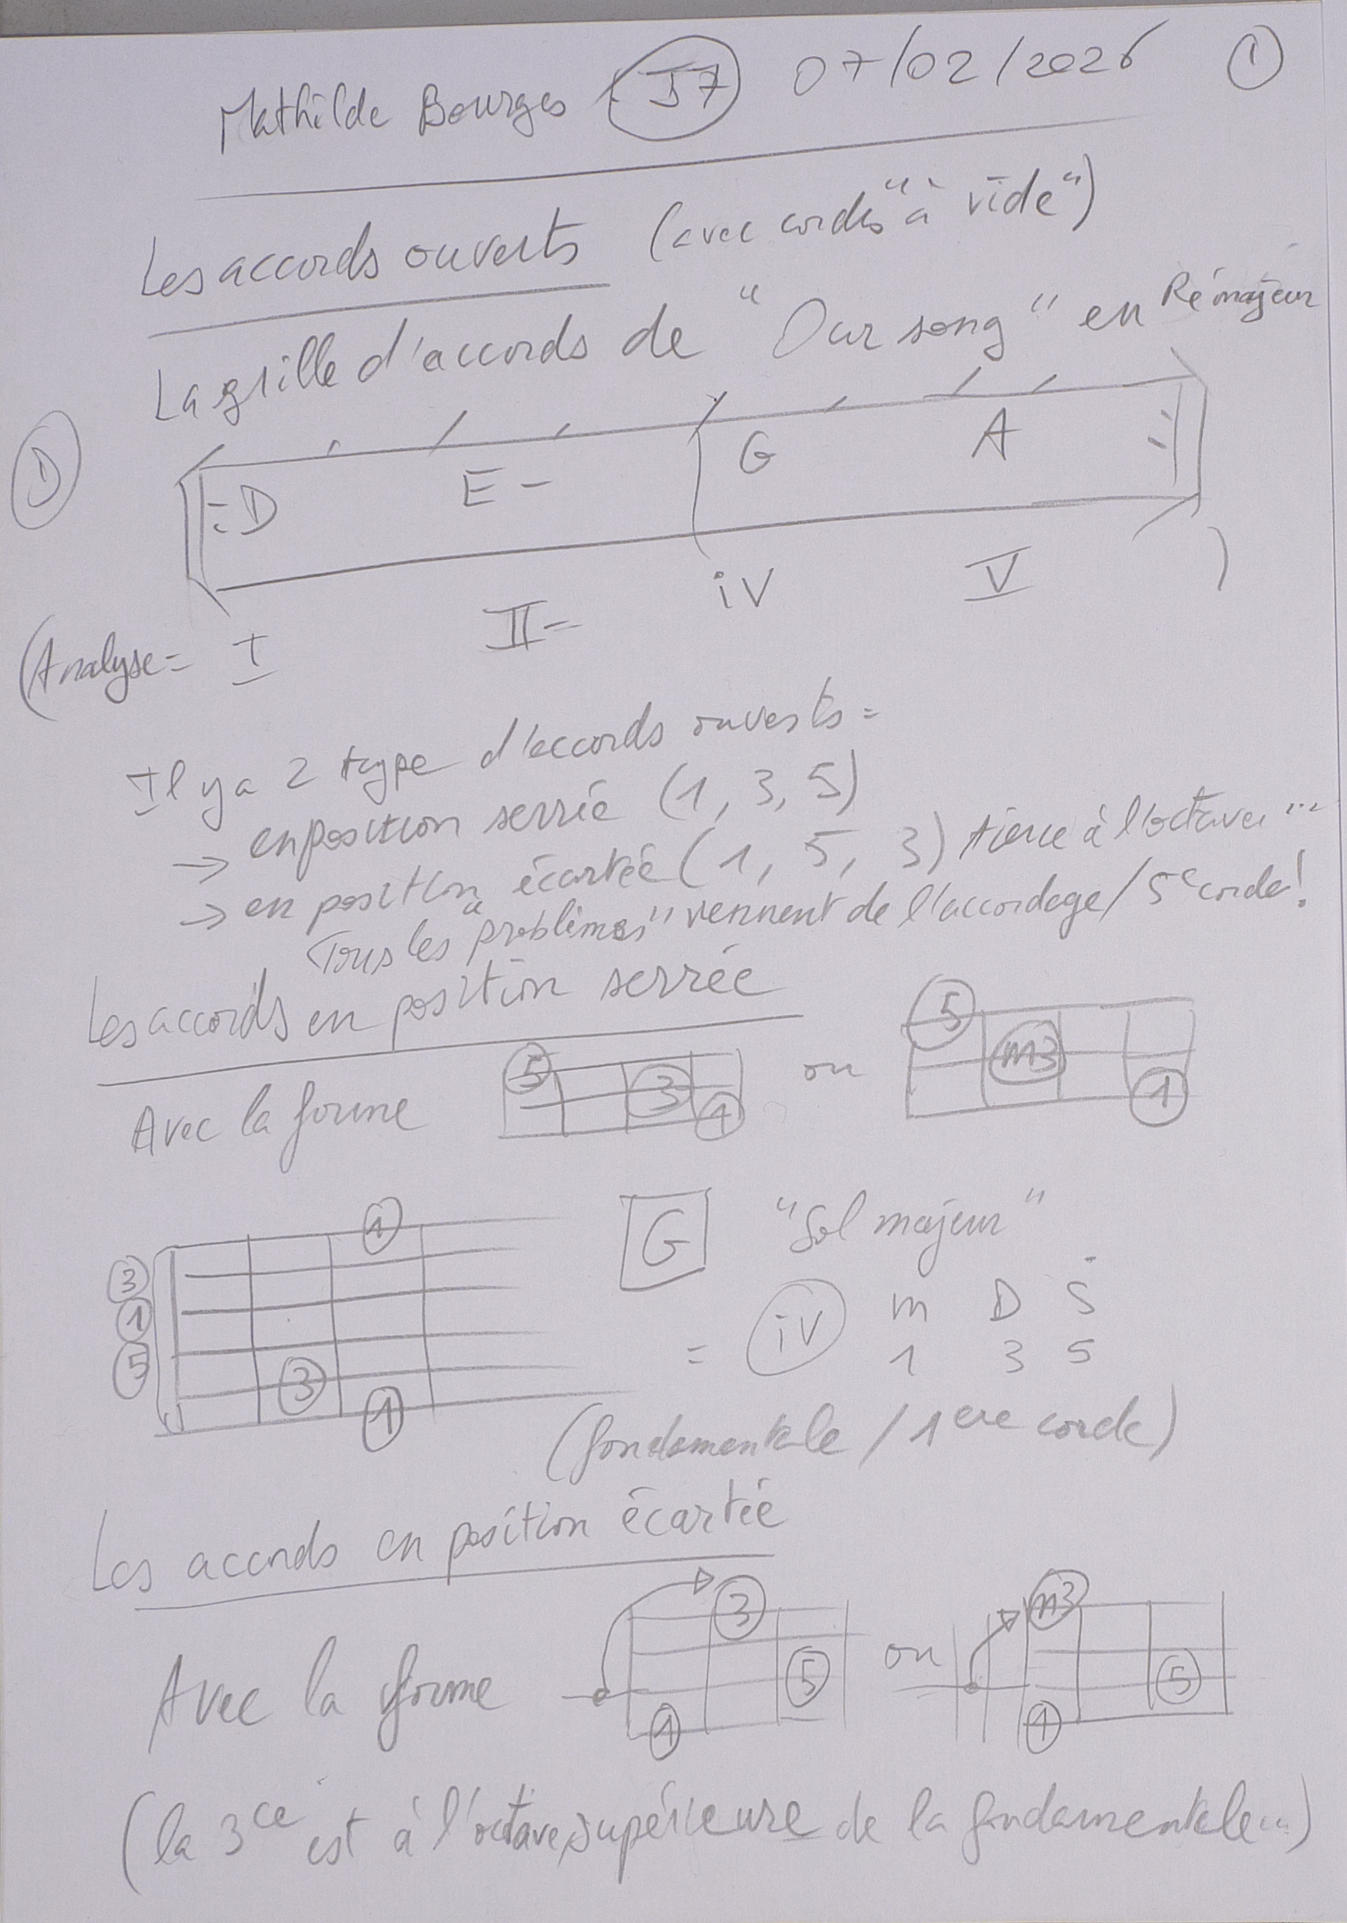 Mathilde Bourges J7 07/02/2026 1
Les accords ouverts (avec cordes "à vide")
La grille d'accords de "Our song" en Ré majeur
D
D E- G A
(Analyse = I II- iV V )
Il y a 2 type d'accords ouverts =
→ en position serrée (1, 3, 5)
→ en position écartée (1, 5, 3) tierce à l'octave ...
Tous les "problèmes" viennent de l'accordage / 5e corde !
Les accords en position serrée
Avec la forme 5 3 1 ou 5 m3 1
3 1 5 3 1 1
G "Sol majeur"
= iV m D S
1 3 5
(fondamentale / 1ere corde)
Les accords en position écartée
Avec la forme 1 3 5 ou 1 m3 5
(la 3ce est à l'octave supérieure de la fondamentale ...)